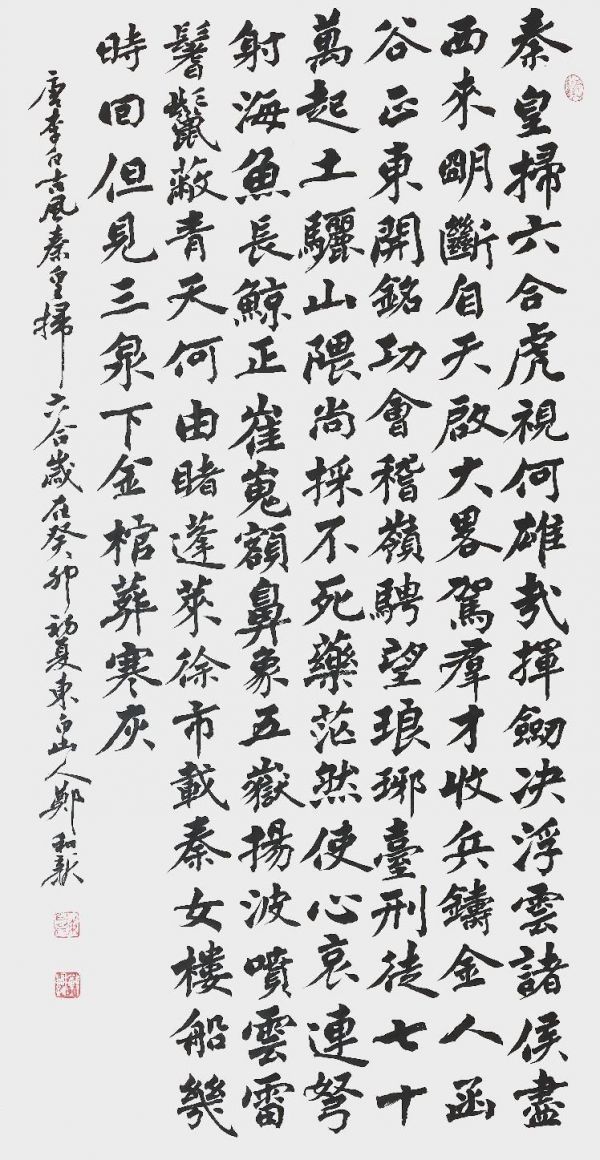 秦皇掃六合虎視何雄哉揮劒决浮雲諸侯盡
西來明斷自天啟大畧駕羣才收兵鑄金人函
谷正東開銘功會稽嶺騁望琅琊臺刑徒七十
萬起土驪山隈尚採不死藥茫然使心哀連弩
射海魚長鯨正崔嵬額鼻象五嶽揚波噴雲雷
鬐鬣蔽青天何由睹蓬萊徐市載秦女樓船幾
時回但見三泉下金棺葬寒灰
唐李白古風秦皇掃六合歲在癸卯初夏東白山人鄭和新